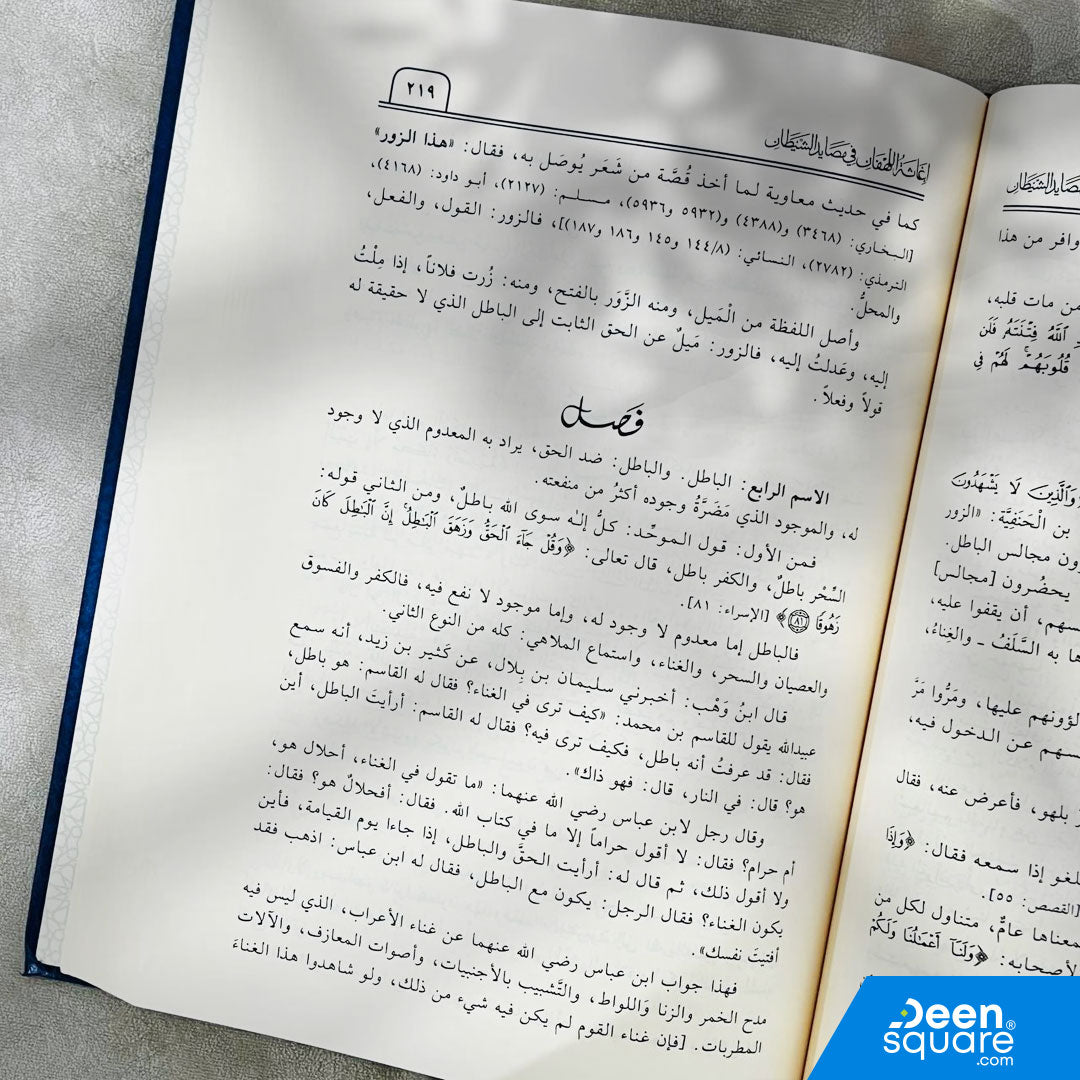 إغاثة اللهفان في مصايد الشيطان
٢١٩
كما في حديث معاوية لما أخذ قُصَّة من شَعَر يُوصَل به، فقال: «هذا الزور»
[البخاري: (٣٤٦٨) و(٤٣٨٨) و(٥٩٣٢ و٥٩٣٦)، مسلم: (٢١٢٧)، أبو داود: (٤١٦٨)،
الترمذي: (٢٧٨٢)، النسائي: (١٤٤/٨ و١٤٥ و١٨٦ و١٨٧)]، فالزور: القول، والفعل،
والمحلُّ.
وأصل اللفظة من الْمَيل، ومنه الزَّوَر بالفتح، ومنه: زُرت فلاناً، إذا مِلْتُ
إليه، وعَدلتُ إليه، فالزور: مَيلٌ عن الحق الثابت إلى الباطل الذي لا حقيقة له
قولاً وفعلاً.
فَصل
الاسم الرابع: الباطل. والباطل: ضد الحق، يراد به المعدوم الذي لا وجود
له، والموجود الذي مَضَرَّةُ وجوده أكثرُ من منفعته.
فمن الأول: قول الموحِّد: كلُّ إله سوى الله باطلٌ، ومن الثاني قوله:
السِّحْر باطلٌ، والكفر باطل، قال تعالى: ﴿وَقُلْ جَآءَ ٱلْحَقُّ وَزَهَقَ ٱلْبَٰطِلُ ۚ إِنَّ ٱلْبَٰطِلَ كَانَ
زَهُوقًا ٨١﴾ [الإسراء: ٨١].
فالباطل إما معدوم لا وجود له، وإما موجود لا نفع فيه، فالكفر والفسوق
والعصيان والسحر، والغناء، واستماع الملاهي: كله من النوع الثاني.
قال ابنُ وَهْب: أخبرني سليمان بن بِلال، عن كَثير بن زيد، أنه سمع
عبيدالله يقول للقاسم بن محمد: «كيف ترى في الغناء؟ فقال له القاسم: هو باطل،
فقال: قد عرفتُ أنه باطل، فكيف ترى فيه؟ فقال له القاسم: أرأيتَ الباطل، أين
هو؟ قال: في النار، قال: فهو ذاك».
وقال رجل لابن عباس رضي الله عنهما: «ما تقول في الغناء، أحلال هو،
أم حرام؟ فقال: لا أقول حراماً إلا ما في كتاب الله. فقال: أفحلالٌ هو؟ فقال:
ولا أقول ذلك، ثم قال له: أرأيت الحقَّ والباطل، إذا جاءا يوم القيامة، فأين
يكون الغناء؟ فقال الرجل: يكون مع الباطل، فقال له ابن عباس: اذهب فقد
أفتيتَ نفسك».
فهذا جواب ابن عباس رضي الله عنهما عن غناء الأعراب، الذي ليس فيه
مدح الخمر والزنا وَاللواط، والتَّشبيب بالأجنبيات، وأصوات المعازف، والآلات
المطربات. [فإن غناء القوم لم يكن فيه شيء من ذلك، ولو شاهدوا هذا الغناءَ
صايد الشيطان
وافر من هذا
من مات قلبه،
ٱللَّهُ فِتْنَتَهُۥ فَلَن
قُلُوبَهُمْ ۚ لَهُمْ فِي
وَٱلَّذِينَ لَا يَشْهَدُونَ
بن الْحَنَفِيَّة: «الزور
ون مجالس الباطل.
يحضُرون [مجالس]
سهم، أن يقفوا عليه،
ها به السَّلَفُ ـ والغِناءُ،
لؤونهم عليها، ومَرُّوا مَرَّ
سهم عن الدخول فيه،
بلهو، فأعرض عنه، فقال
لغو إذا سمعه فقال: ﴿وَإِذَا
[القصص: ٥٥].
معناها عامٌّ، متناول لكل من
لأصحابه: ﴿وَلَنَآ أَعْمَٰلُنَا وَلَكُمْ
Deen
square®
.com